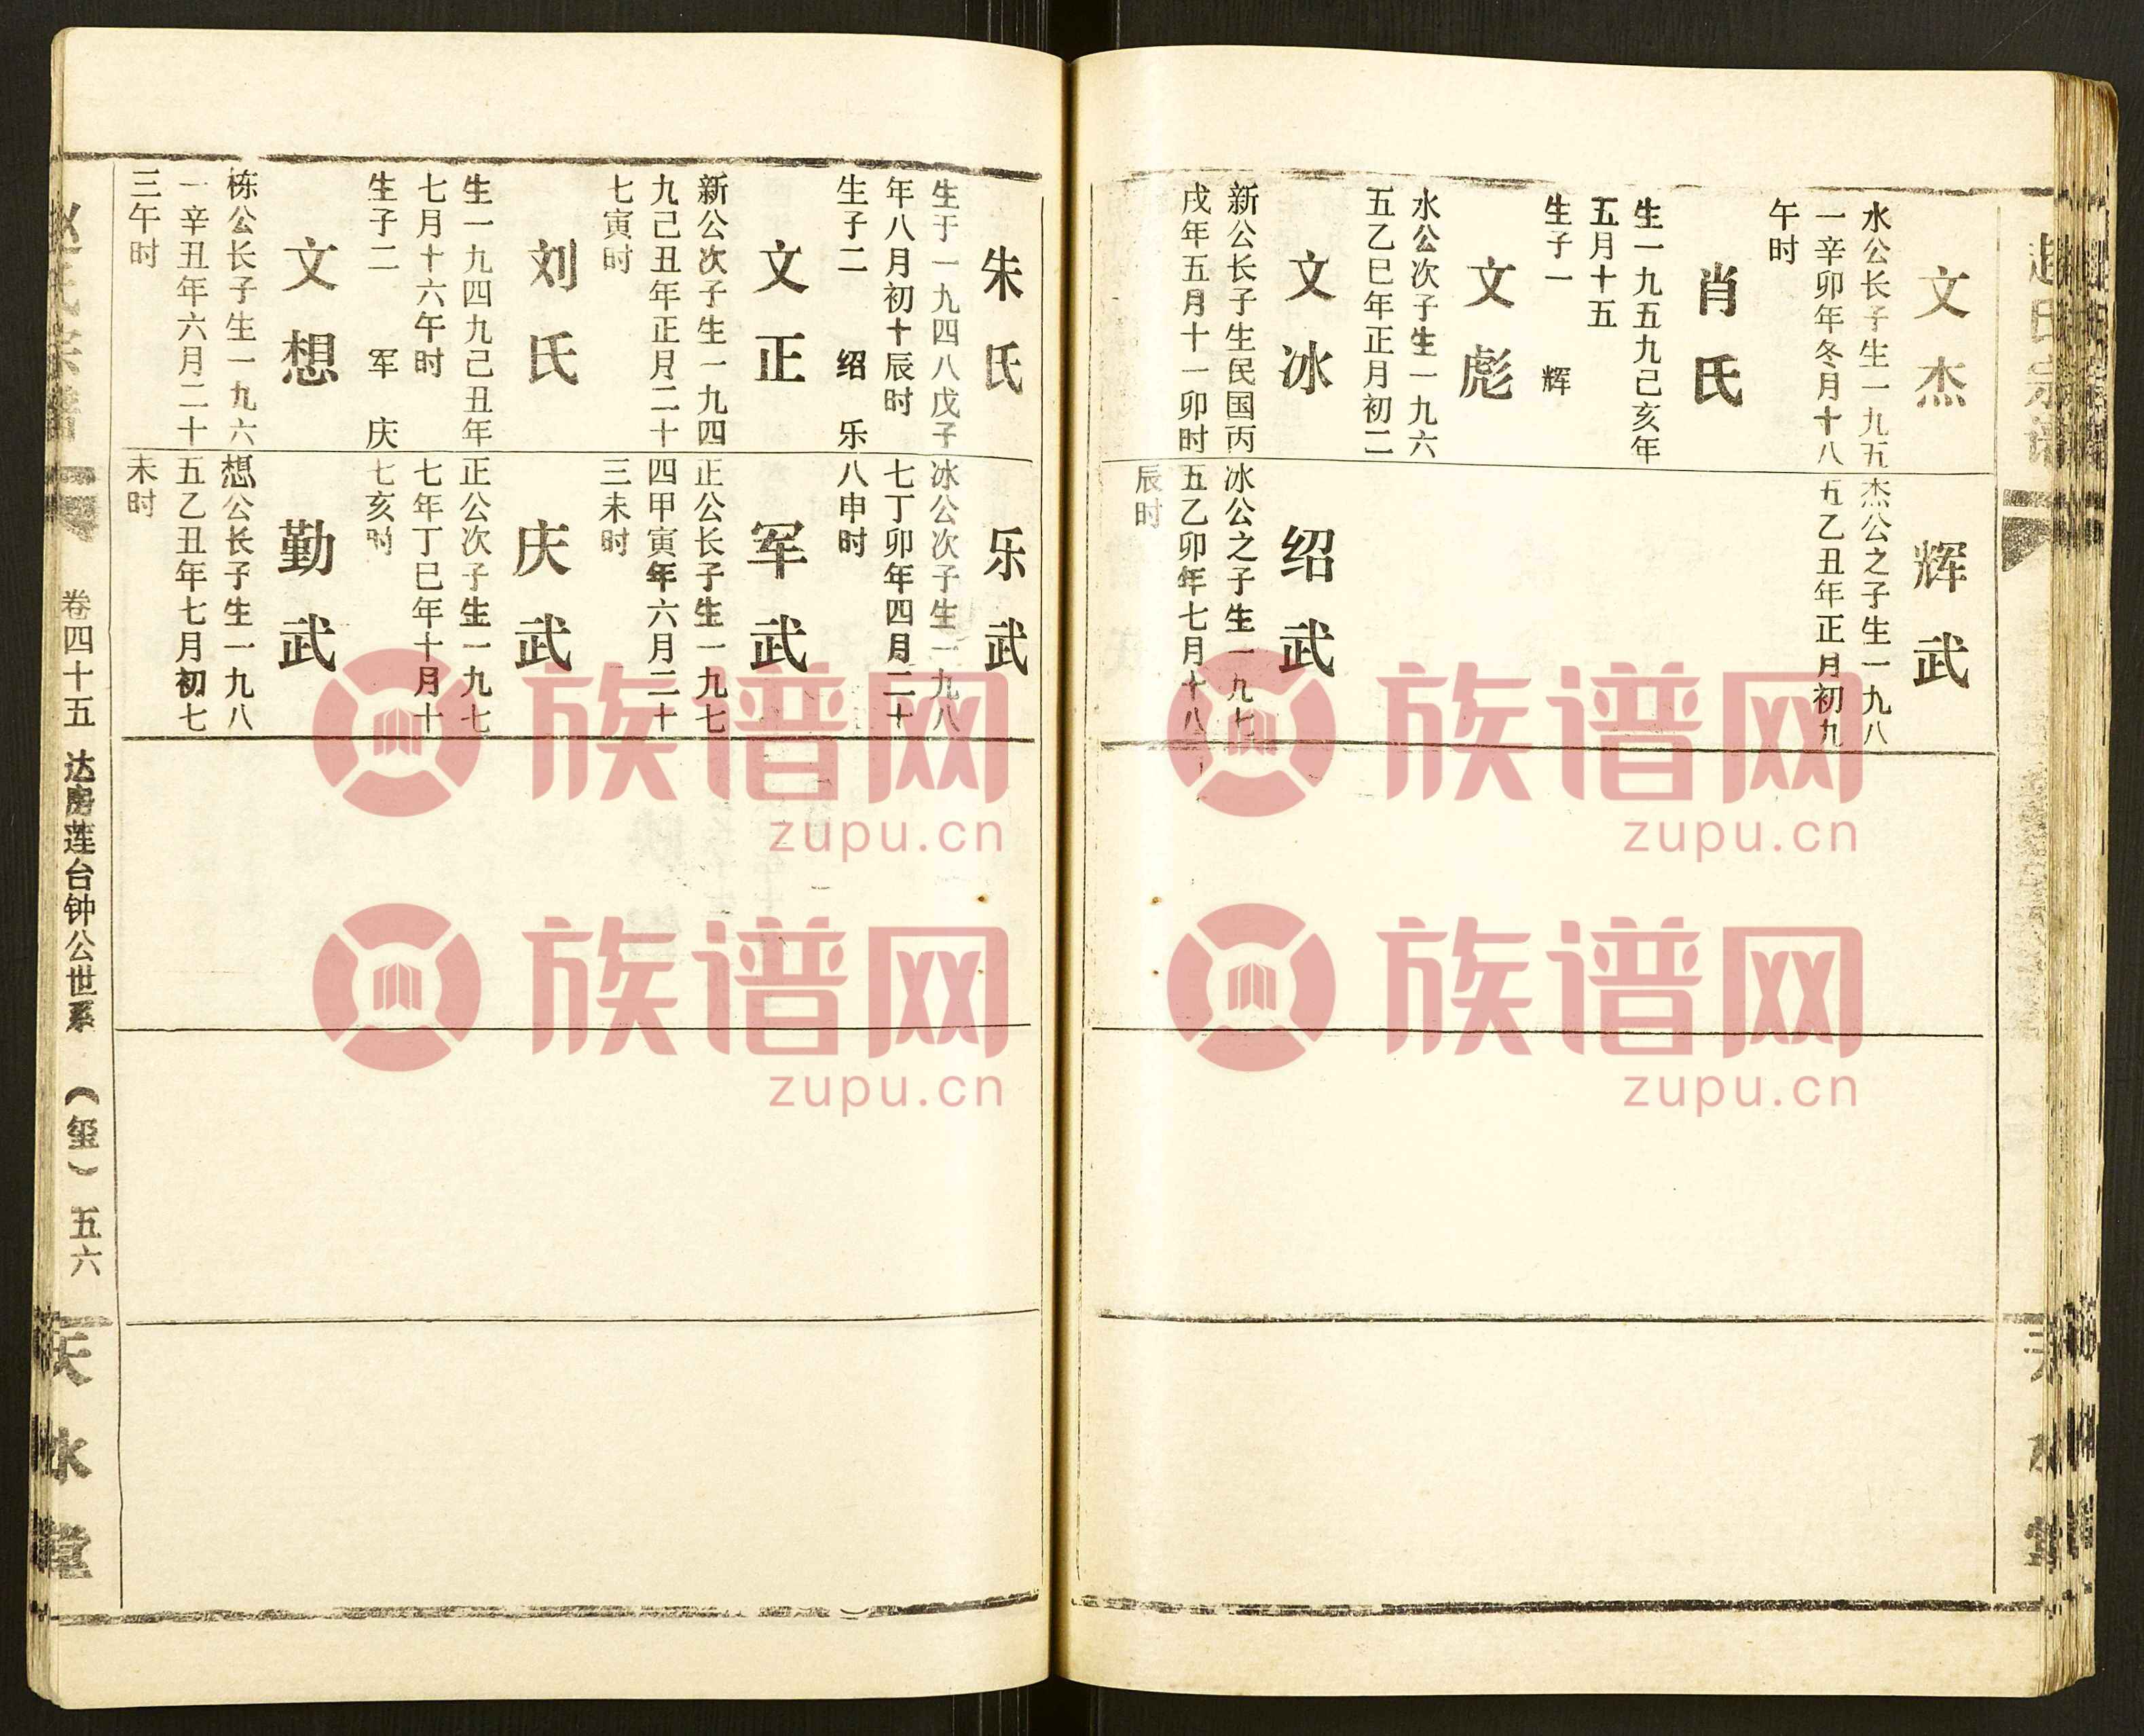 赵氏宗谱
文杰
水公长子生一九五
一辛卯年冬月十八
午时
肖氏
生一九五九己亥年
五月十五
生子一 辉
文彪
水公次子生一九六
五乙巳年正月初二
文冰
新公长子生民国丙
戌年五月十一卯时
辉武
杰公之子生一九八
五乙丑年正月初九
绍武
冰公之子生一九七
五乙卯年七月十八
辰时
朱氏
生于一九四八戊子
年八月初十辰时
生子二 绍 乐
文正
新公次子生一九四
九己丑年正月二十
七寅时
刘氏
生一九四九己丑年
七月十六午时
生子二 军 庆
文想
栋公长子生一九六
一辛丑年六月二十
三午时
乐武
冰公次子生一九八
七丁卯年四月二十
八申时
军武
正公长子生一九七
四甲寅年六月二十
三未时
庆武
正公次子生一九七
七年丁巳年十月十
七亥时
勤武
想公长子生一九八
五乙丑年七月初七
未时
赵氏宗谱
卷四十五 达房莲台钟公世系 （玺） 五六
天水堂
族谱网
zupu.cn
族谱网
zupu.cn
族谱网
zupu.cn
族谱网
zupu.cn